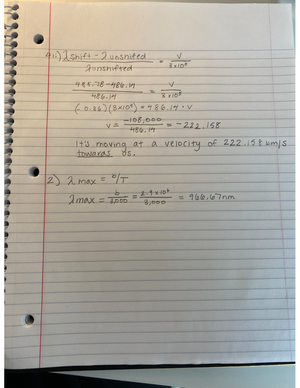 4ii) λshift - λunshifted / λunshifted = V / 3×10⁸
485.78-486.14 / 486.14 = V / 3×10⁸
(-0.36)(3×10⁸) = 486.14 · V
V = -108,000 / 486.14 = -222.158
It's moving at a velocity of 222.158 km/s
towards us.
2) λmax = b/T
λmax = b / 3000 = 2.9×10⁶ / 3,000 = 966.67nm